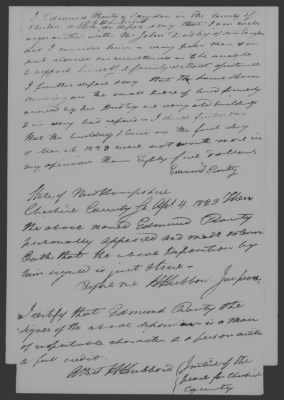 I Edmund Prouty of Langdon in the County of
Cheshire & State of N Hampshire do depose & say that I am well
acquainted with Mr John Digby of
and I consider him a very poor man & in
such circumstances as to be unable
to support himself & family without assistance
I further depose & say that the house & barn
on the small piece of land formerly
owned by the Digby are very old buildings
& in very bad repair & I think further say
that the buildings & land on the first day
of March 1823 were not worth more in
my opinion than Eighty five dollars
Edmund Prouty
State of New Hampshire
Cheshire County Ss Apl 4. 1823 Then
the above named Edmund Prouty
personally appeared and made solemn
Oath that the above deposition by
him signed is just & true -
Before me H Hubbard Jus peace
I certify that Edmund Prouty the
signer of the above deposition is a man
of respectable character & a person entitled
to full credit.
Attest H Hubbard Justice of the
peace for Cheshire
County